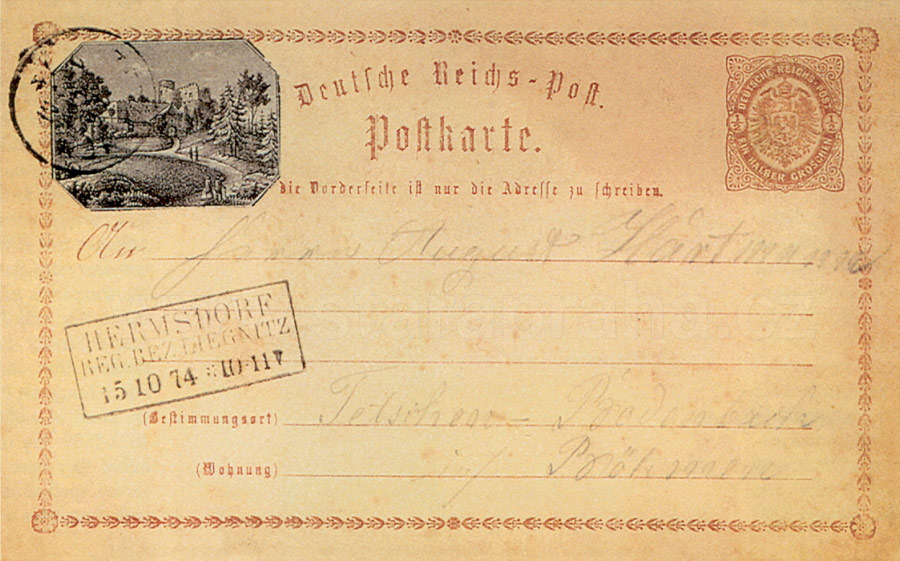 Deutsche Reichs-Post.
Postkarte.
DEUTSCHE REICHS-POST
1/2 1/2
EIN HALBER GROSCHEN
die Vorderseite ist nur die Adresse zu schreiben.
An Herrn August Hartmann
HERMSDORF
REG. BEZ. LIEGNITZ
15 10 74 10-11V
(Bestimmungsort) Tetschen - Bodenbach
(Wohnung) in Böhmen